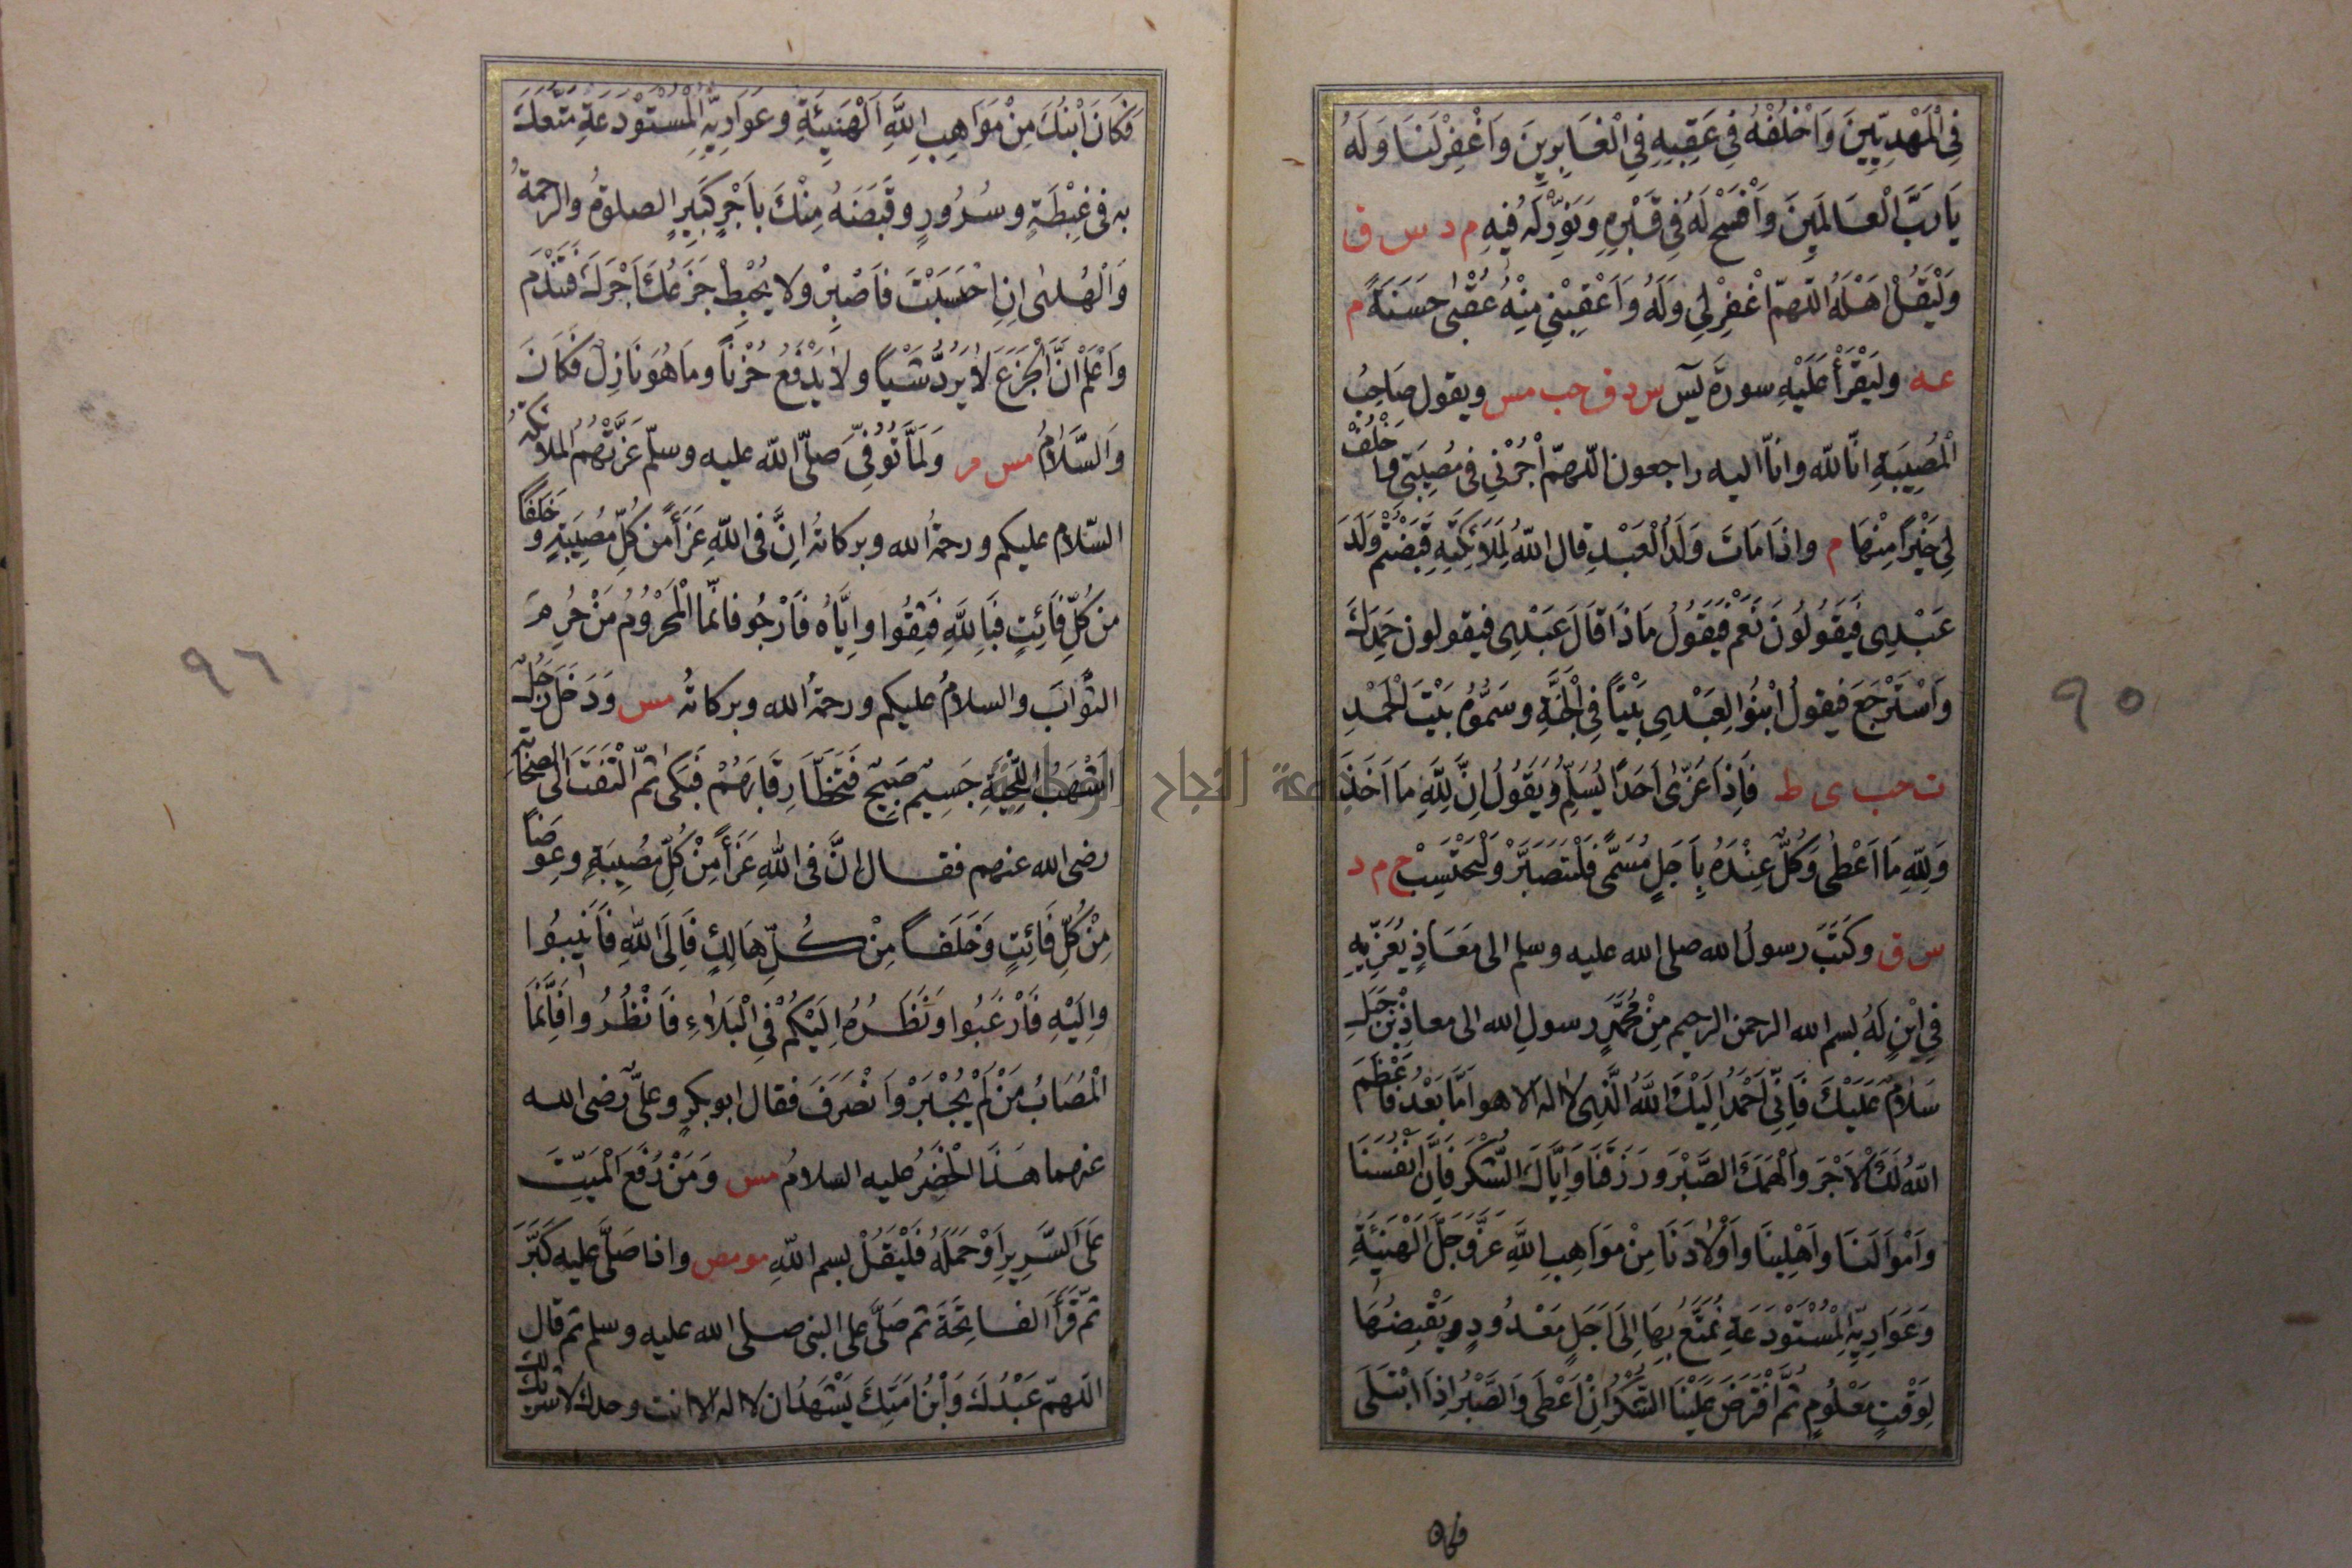 فِي الْمَهْدِيِّينَ وَاخْلُفْهُ فِي عَقِبِهِ فِي الْغَابِرِينَ وَاغْفِرْ لَنَا وَلَهُ
يَا رَبَّ الْعَالَمِينَ وَافْسَحْ لَهُ فِي قَبْرِهِ وَنَوِّرْ لَهُ فِيهِ م د س ق
وَلْيَقُلْ اَهْلُهُ اللّهمّ اغْفِرْ لِي وَلَهُ وَاَعْقِبْنِي مِنْهُ عُقْبٰى حَسَنَةً م
عه ولْيَقْرَأْ عَلَيْهِ سورةَ يٓس س د ق حب مس ويقول صَاحِبُ
الْمُصِيبَةِ انّا لله وانّا اليه راجعون اللّهمّ اْجُرْنِي فى مُصِيبَتِي واخْلُفْ
لِي خَيْرًا مِنْهَا م واذَا مَاتَ وَلَدُ الْعَبْدِ قال اللهُ لِمَلَائِكَتِهِ قَبَضْتُمْ وَلَدَ
عَبْدِى فَيَقُولُونَ نَعَمْ فَيَقُولُ مَاذَا قَالَ عَبْدِى فيقولون حَمِدَكَ
وَاسْتَرْجَعَ فيقولُ ابْنُوا لِعَبْدِى بَيْتًا فِي الْجَنَّةِ وسَمُّوهُ بَيْتَ الْحَمْدِ
ت حب ى ط فَاِذَا عَزّٰى اَحَدًا يُسَلِّمُ وَيَقُولُ اِنَّ لِلّٰهِ مَا اَخَذَ
وَلِلّٰهِ مَا اَعْطٰى وَكُلٌّ عِنْدَهُ بِاَجَلٍ مُسَمًّى فَلْتَصْبِرْ وَلْتَحْتَسِبْ خ م د
س ق وكَتَبَ رسولُ الله صلى الله عليه وسلم الى مَعَاذٍ يُعَزِّيهِ
فِي ابْنٍ لَهُ بسم الله الرحمن الرحيم مِنْ مُحَمَّدٍ رسولِ الله الى معاذِ بْنِ جَبَلٍ
سَلَامٌ عَلَيْكَ فَاِنِّي اَحْمَدُ اِلَيْكَ اللّٰهَ الَّذِى لا اله الا هو اَمَّا بَعْدُ فَاَعْظَمَ
اللهُ لَكَ الْاَجْرَ وَاَلْهَمَكَ الصَّبْرَ وَرَزَقَنَا وَاِيَّاكَ الشُّكْرَ فَاِنَّ اَنْفُسَنَا
وَاَمْوَالَنَا وَاَهْلِينَا وَاَوْلَادَنَا مِنْ مَوَاهِبِ اللّٰهِ عَزَّ وَجَلَّ الْهَنِيئَةِ
وَعَوَارِيِّهِ الْمُسْتَوْدَعَةِ نُمَتَّعُ بِهَا اِلَى اَجَلٍ مَعْدُودٍ وَيَقْبِضُهَا
لِوَقْتٍ مَعْلُومٍ ثُمَّ افْتَرَضَ عَلَيْنَا الشُّكْرَ اِذَا اَعْطَى وَالصَّبْرَ اِذَا ابْتَلَى
٩٥
فَكَانَ ابْنُكَ مِنْ مَوَاهِبِ اللّٰهِ الْهَنِيئَةِ وعَوَارِيِّهِ الْمُسْتَوْدَعَةِ مَتَّعَكَ
به فى غِبْطَةٍ وسُرُورٍ وقَبَضَهُ مِنْكَ بِاَجْرٍ كَبِيرٍ الصلوةُ والرحمةُ
وَالْهُدٰى اِنِ احْتَسَبْتَ فَاصْبِرْ ولا يُحْبِطْ جَزَعُكَ اَجْرَكَ فَتَنْدَمَ
وَاعْلَمْ اَنَّ الْجَزَعَ لَا يَرُدُّ شَيْئًا ولا يَدْفَعُ حُزْنًا وما هُوَ نَازِلٌ فَكَانَ
وَالسَّلَامُ مس مر وَلَمَّا تُوُفِّيَ صَلّى الله عليه وسلّم عَزَّتْهُمُ الملائكةُ
السّلام عليكم ورحمةُ الله وبركاتُه اِنَّ فى اللّٰهِ عَزَاءً مِن كُلِّ مُصِيبَةٍ وَخَلَفًا
مِن كُلِّ فَائِتٍ فَبِاللّٰهِ فَثِقُوا واِيَّاهُ فَارْجُوا فانّما الْمَحْرُومُ مَنْ حُرِمَ
الثَّوَابَ والسلامُ عليكم ورحمةُ الله وبركاتُه مس وَدَخَلَ رَجُلٌ
اَشْهَبُ اللِّحْيَةِ جَسِيمٌ صَبِيحٌ فَتَخَطَّا رِقَابَهُمْ فَبَكٰى ثمّ الْتَفَتَ الى الصحابةِ
رضى الله عنهم فقال اِنَّ فى اللّٰهِ عَزَاءً مِنْ كُلِّ مُصِيبَةٍ وعِوَضًا
مِنْ كُلِّ فَائِتٍ وَخَلَفًا مِنْ كُلِّ هَالِكٍ فَاِلَى اللّٰهِ فَاَنِيبُوا
واِلَيْهِ فَارْغَبُوا وَنَظَرُهُ اِلَيْكُمْ فِي الْبَلَاءِ فَانْظُرُوا فَاِنَّمَا
الْمُصَابُ مَنْ لَمْ يُجْبَرْ وَانْصَرَفَ فقال ابو بكرٍ وعلىٌّ رضى الله
عنهما هٰذَا الْخَضِرُ عليه السلامُ مس وَمَنْ رَفَعَ الْمَيِّتَ
عَلَى السَّرِيرِ اَوْ حَمَلَهُ فَلْيَقُلْ بسم اللّٰهِ مو مص واذا صَلَّى عليه كَبَّرَ
ثمّ قَرَأَ الْفَاتِحَةَ ثم صَلَّى على النبى صلى الله عليه وسلم ثم قال
اللّهمّ عَبْدُكَ وَابْنُ اَمَتِكَ يَشْهَدُ ان لا اله الا انت وحدك لا شريك لك
٩٦
جامعة النجاح الوطنية